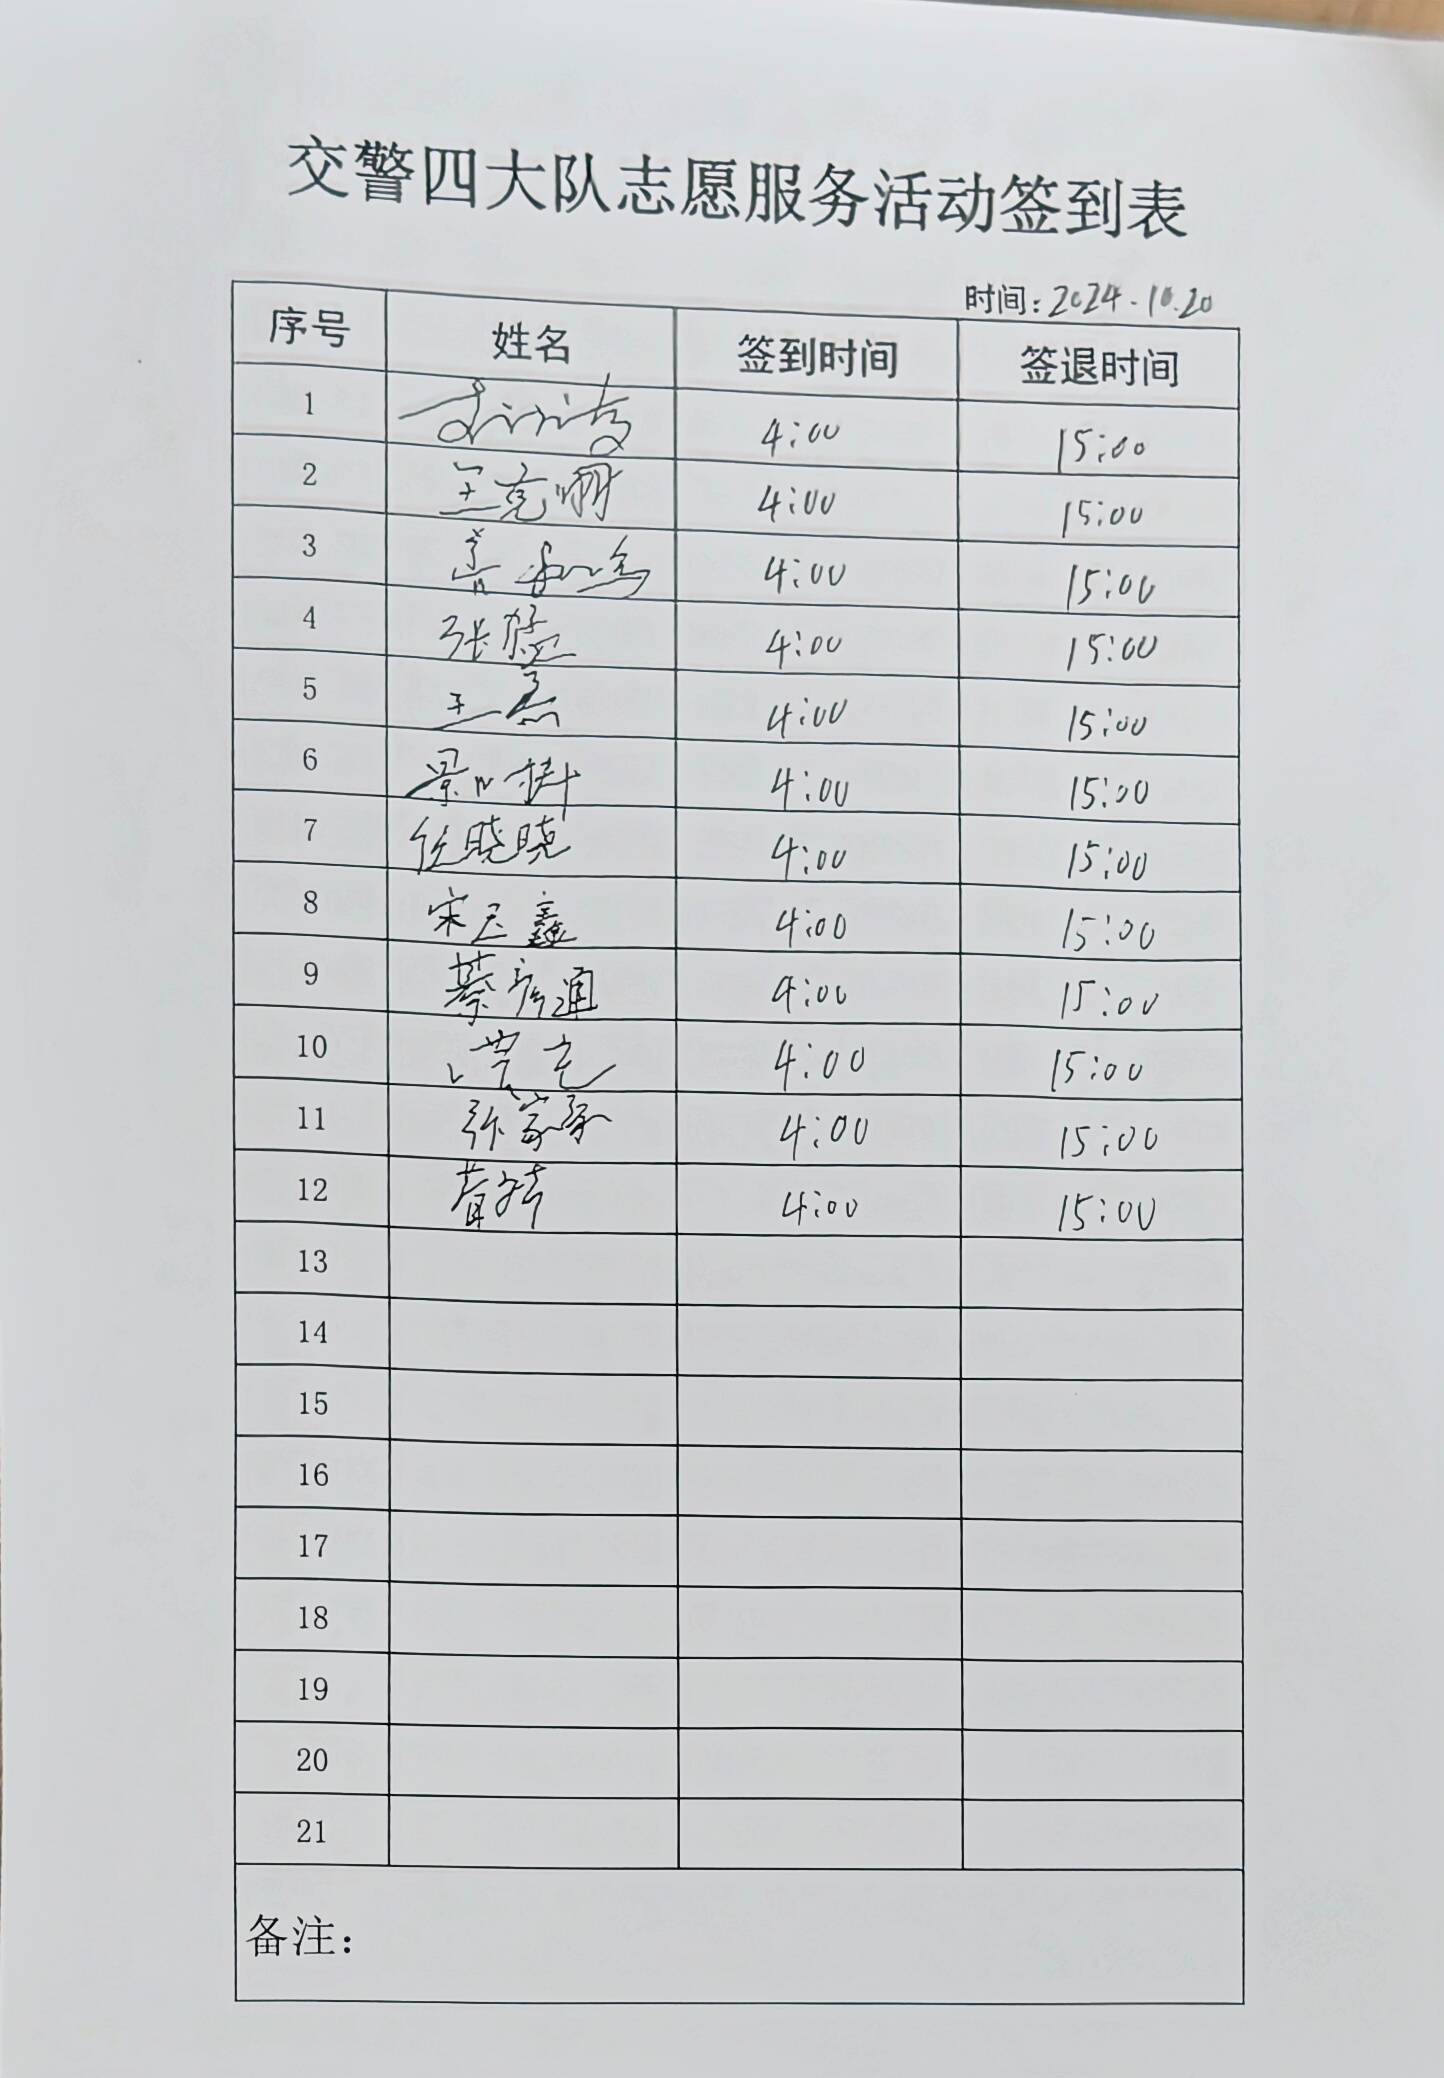 交警四大队志愿服务活动签到表
时间：2024.10.20
序号 姓名 签到时间 签退时间
1 4:00 15:00
2 王克明 4:00 15:00
3 4:00 15:00
4 张 4:00 15:00
5 王磊 4:00 15:00
6 景 4:00 15:00
7 任晓晓 4:00 15:00
8 宋玉鑫 4:00 15:00
9 綦彦通 4:00 15:00
10 4:00 15:00
11 张家豪 4:00 15:00
12 4:00 15:00
13
14
15
16
17
18
19
20
21
备注：